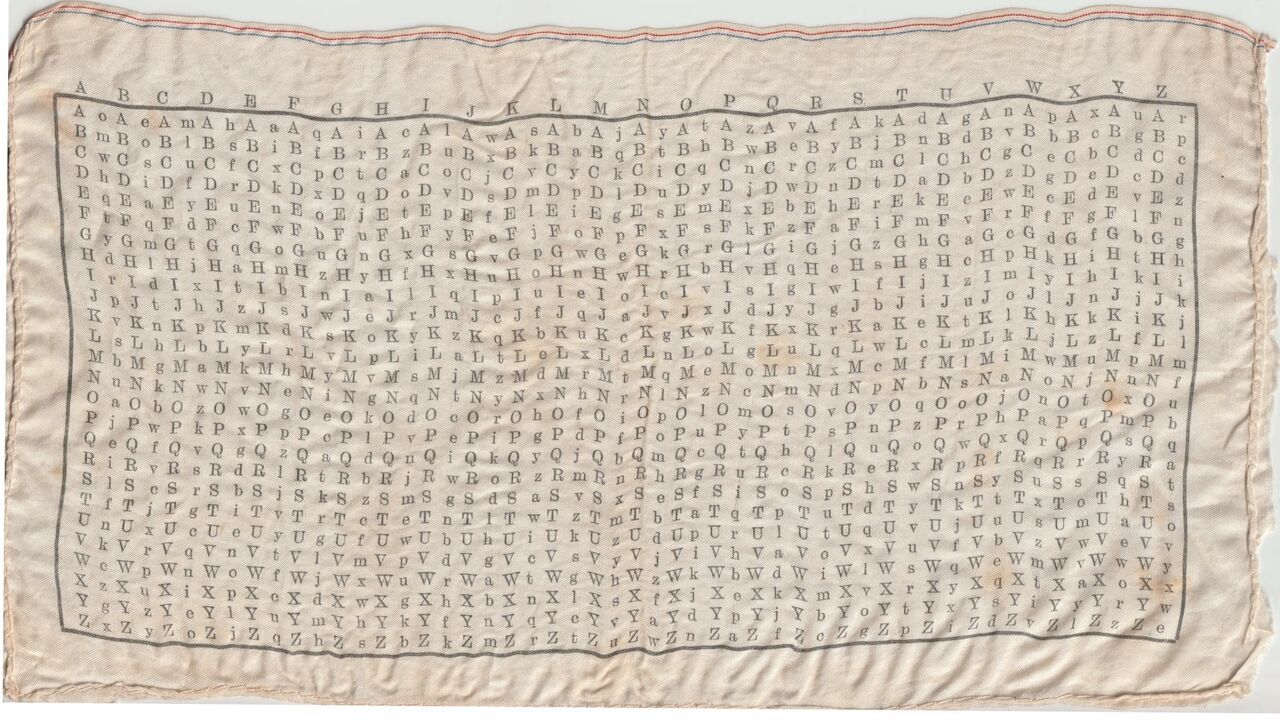 A B C D E F G H I J K L M N O P Q R S T U V W X Y Z
A o A e A m A h A a A q A i A c A l A w A s A b A j A y A t A z A v A f A k A d A g A n A p A x A u A r
B m B o B l B s B i B f B r B z B u B x B k B a B q B t B h B w B e B y B j B n B d B v B b B c B g B p
C w C s C u C f C x C p C t C a C o C j C v C y C k C i C q C n C r C z C m C l C h C g C e C b C d C c
D h D i D f D r D k D x D q D o D v D s D m D p D l D u D y D j D w D n D t D a D b D z D g D e D c D d
E q E a E y E u E n E o E j E t E p E f E l E i E g E s E m E x E b E h E r E k E c E w E e E d E v E z
F t F q F d F c F w F b F u F h F y F e F j F o F p F x F s F k F z F a F i F m F v F r F f F g F l F n
G y G m G t G q G o G u G n G x G s G v G p G w G e G k G r G l G i G j G z G h G a G c G d G f G b G g
H d H l H j H a H m H z H y H f H x H u H o H n H w H r H b H v H q H e H s H g H c H p H k H i H t H h
I r I d I x I t I b I n I a I l I q I p I u I e I o I c I v I s I g I w I f I j I z I m I y I h I k I i
J p J t J h J z J s J w J e J r J m J c J f J q J a J v J x J d J y J g J b J i J u J o J l J n J j J k
K v K n K p K m K d K s K o K y K z K q K b K u K c K g K w K f K x K r K a K e K t K l K h K k K i K j
L s L h L b L y L r L v L p L i L a L t L e L x L d L n L o L g L u L q L w L c L m L k L j L z L f L l
M b M g M a M k M h M y M v M s M j M z M d M r M t M q M e M o M n M x M c M f M l M i M w M u M p M m
N u N k N w N v N e N i N g N q N t N y N x N h N r N l N z N c N m N d N p N b N s N a N o N j N n N f
O a O b O z O w O g O e O k O d O c O r O h O f O i O p O l O m O s O v O y O q O o O j O n O t O x O u
P j P w P k P x P p P c P l P v P e P i P g P d P f P o P u P y P t P s P n P z P r P h P a P q P m P b
Q e Q f Q v Q g Q z Q a Q d Q n Q i Q k Q y Q j Q b Q m Q c Q t Q h Q l Q u Q o Q w Q x Q r Q p Q s Q q
R i R v R s R d R l R t R b R j R w R o R z R m R n R h R g R u R c R k R e R x R p R f R q R r R y R a
S l S c S r S b S j S k S z S m S g S d S a S v S x S e S f S i S o S p S h S w S n S y S u S s S q S t
T f T j T g T i T v T r T c T e T n T l T w T z T m T b T a T q T p T u T d T y T k T t T x T o T h T s
U n U x U c U e U y U g U f U w U b U h U i U k U z U d U p U r U l U t U q U v U j U u U s U m U a U o
V k V r V q V n V t V l V m V p V d V g V c V s V y V j V i V h V a V o V x V u V f V b V z V w V e V v
W c W p W n W o W f W j W x W u W r W a W t W g W h W z W k W b W d W i W l W s W q W e W m W v W w W y
X z X u X i X p X c X d X w X g X h X b X n X l X s X f X j X e X k X m X v X r X y X q X t X a X o X x
Y g Y z Y e Y l Y u Y m Y h Y k Y f Y n Y q Y c Y v Y a Y d Y p Y j Y b Y o Y t Y x Y s Y i Y y Y r Y w
Z x Z y Z o Z j Z q Z h Z s Z b Z k Z m Z r Z t Z u Z w Z n Z a Z f Z c Z g Z p Z i Z d Z v Z l Z z Z e